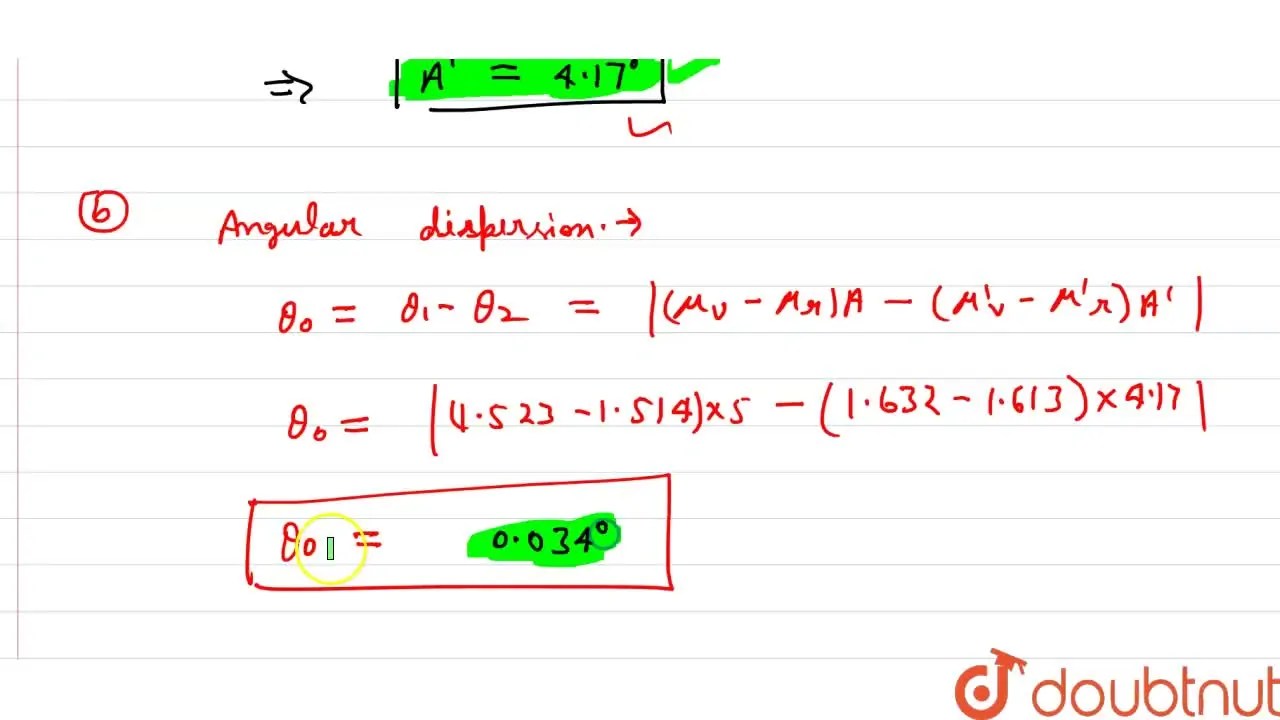 ⇒ A' = 4.17°
(b) Angular dispersion. →
θ₀ = θ₁ - θ₂ = |(μv - μr)A - (μ'v - μ'r)A'|
θ₀ = |(4.523 - 1.514)×5 - (1.632 - 1.613)×4.17|
θ₀ = 0.034°
doubtnut